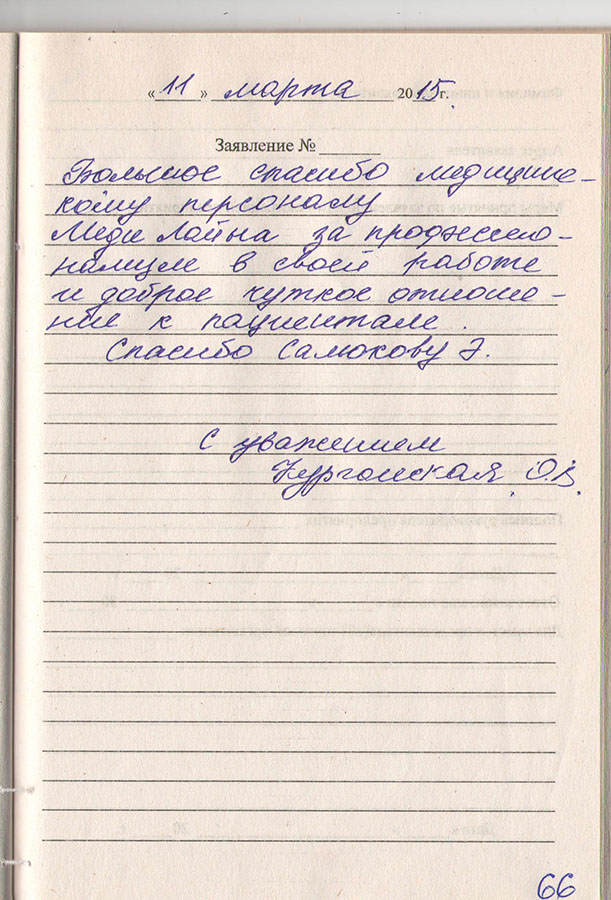 «11» марта 2015г.
Заявление №
Большое спасибо медицинс-
кому персоналу
Меди Лайна за професио-
нализм в своей работе
и доброе чуткое отноше-
ние к пациентам.
Спасибо Самокову Э.
С уважением
О.В.
66